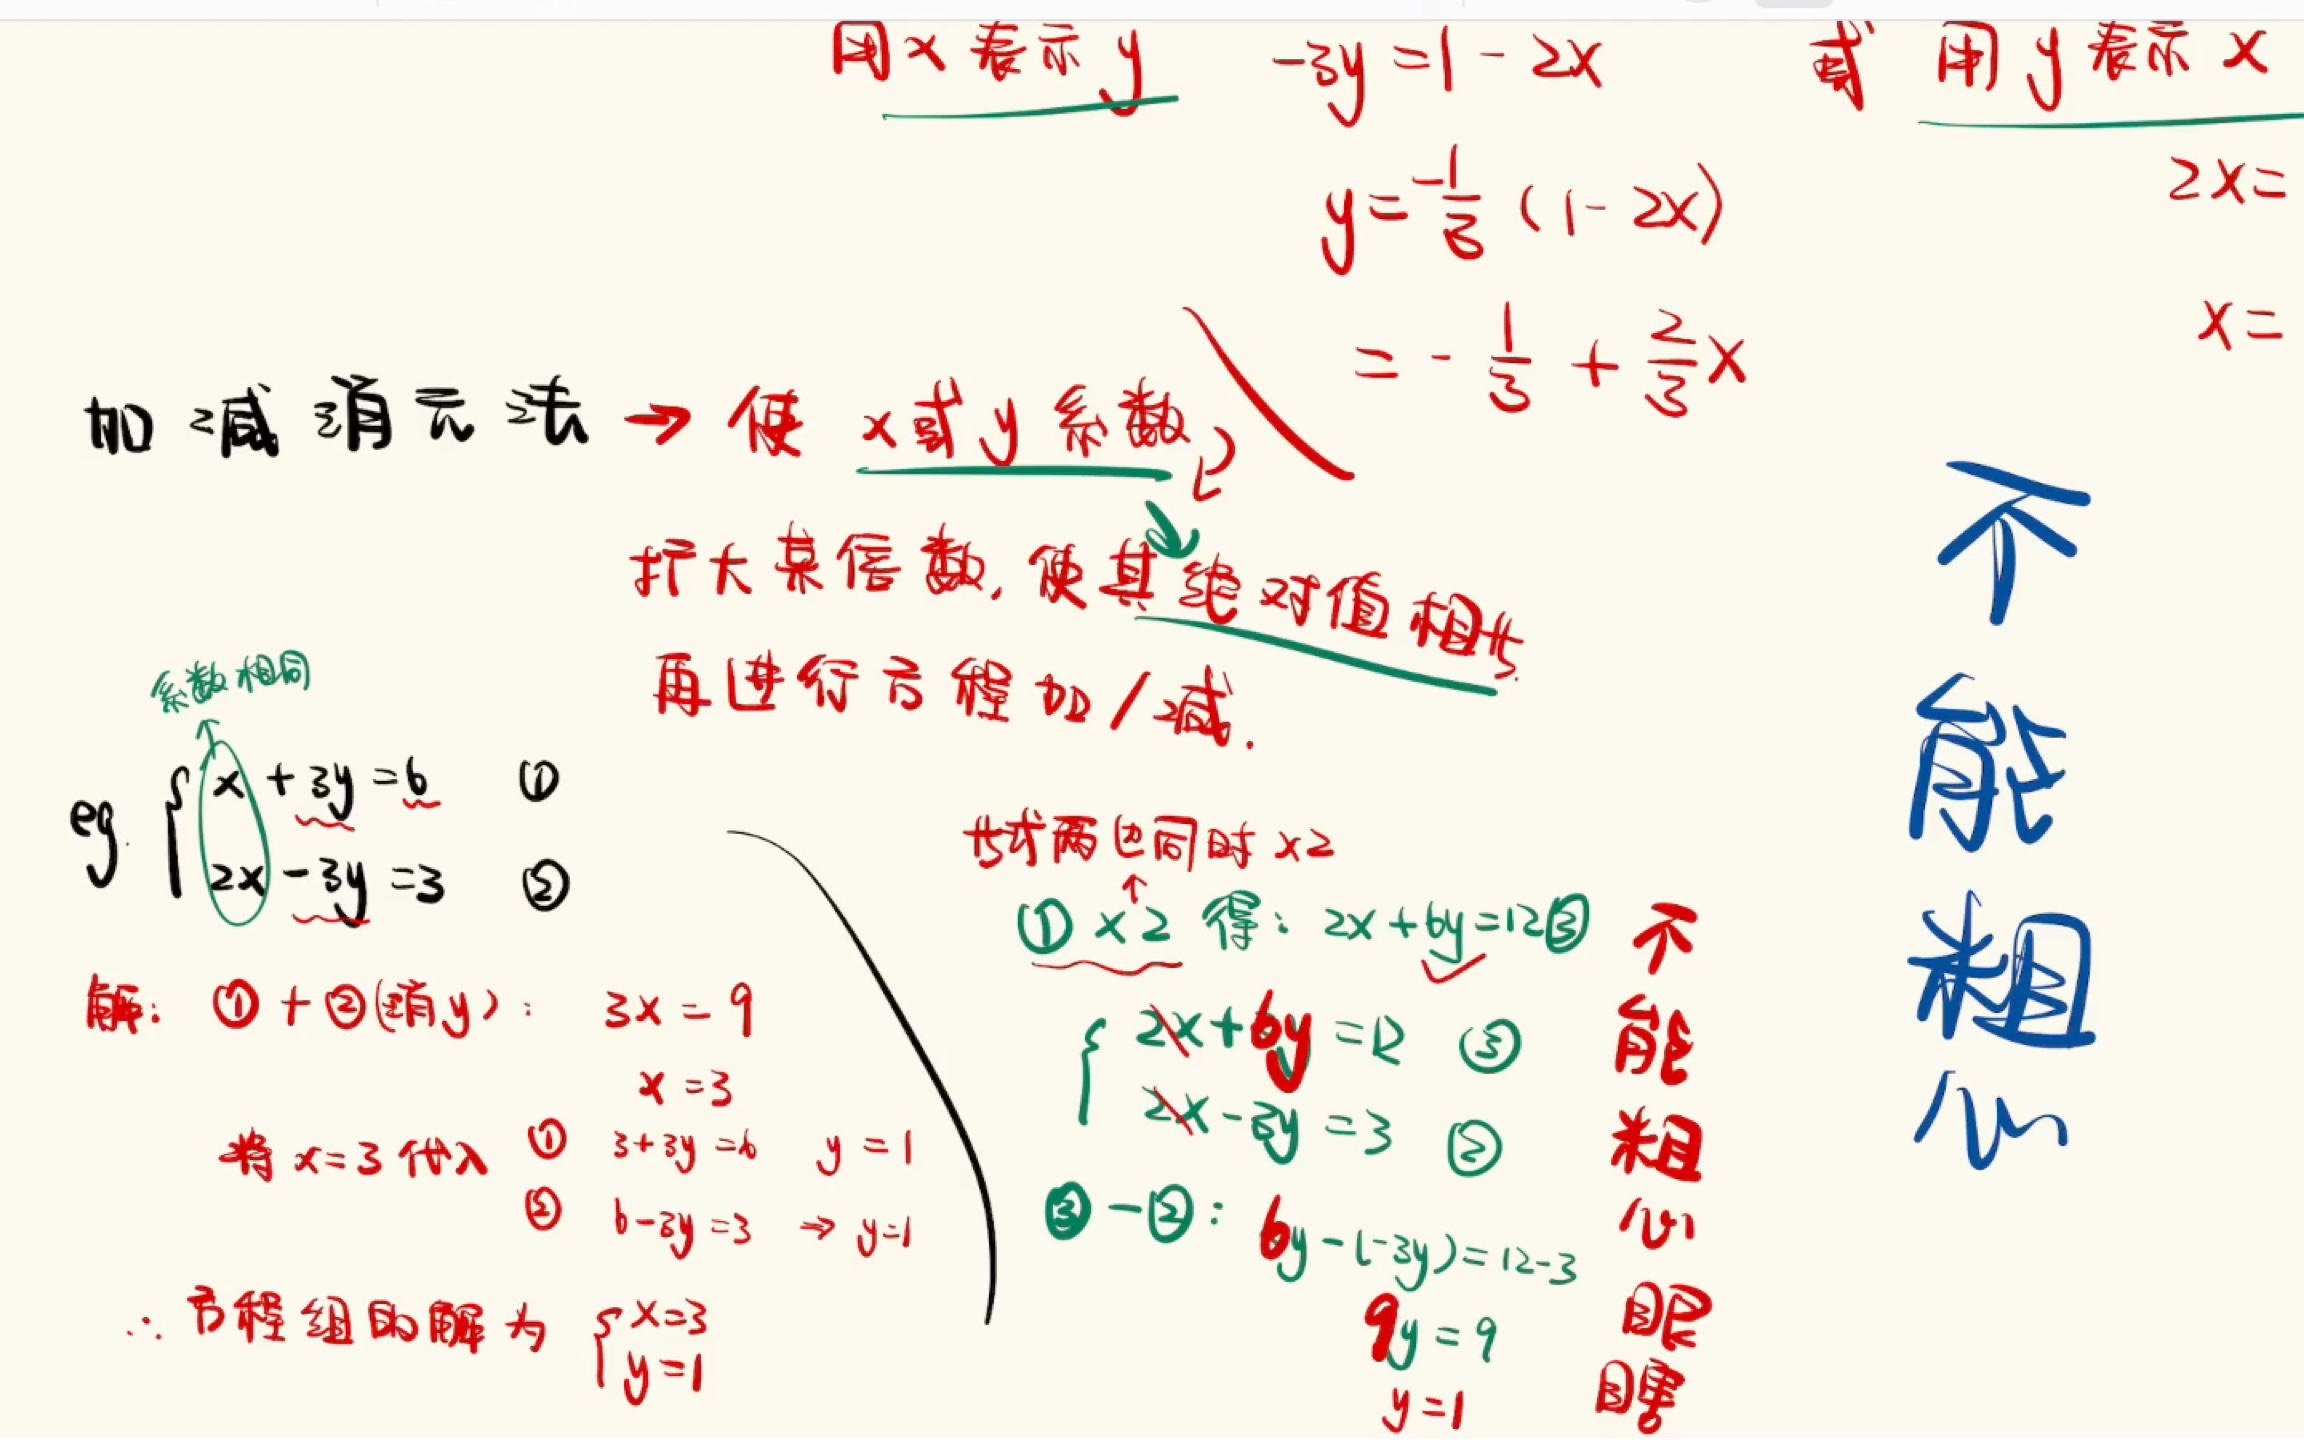 用x表示y -3y=1-2x 或 用y表示x
y=-1/3(1-2x) 2x=
=-1/3+2/3x x=
加减消元法→使x或y系数
扩大某倍数,使其绝对值相等
再进行方程加/减.
系数相同
eg. { x+3y=6 ①
2x-3y=3 ②
解: ①+②(消y): 3x=9
x=3
将x=3代入 ① 3+3y=6 y=1
② 6-3y=3 ⇒ y=1
∴方程组的解为 { x=3
y=1
等式两边同时×2
↑
①×2 得: 2x+6y=12③
{ 2x+6y=12 ③
2x-3y=3 ②
③-②: 6y-(-3y)=12-3
9y=9
y=1
不
能
粗
心
眼
瞎
不
能
粗
心